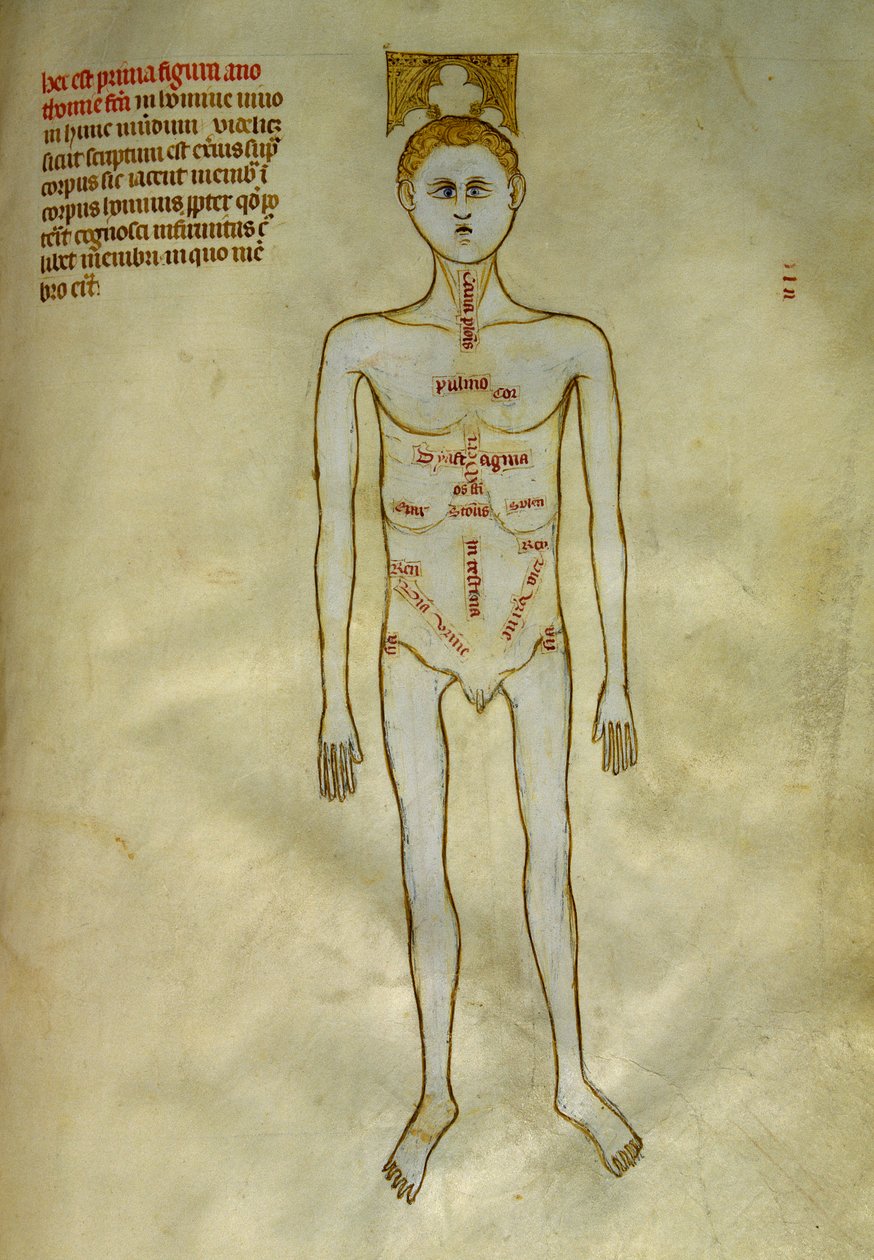 hec est prima figura ano
thomie fcā in homine uiuo
in hunc mūdum videlicȝ
sicut scriptum est exius sup̄
corpus sic iacent memb̄ ī
corpus hominis ꝓpter qd̄ po
terit cognosci infirmitas c̄
libet membri in quo mē
bro erit:
Cana pl̄ois
pulmo
Cor
Dyaff agma
os stī
Epar Stōus Splen
Ren
Ren
Via vrine
vrine via